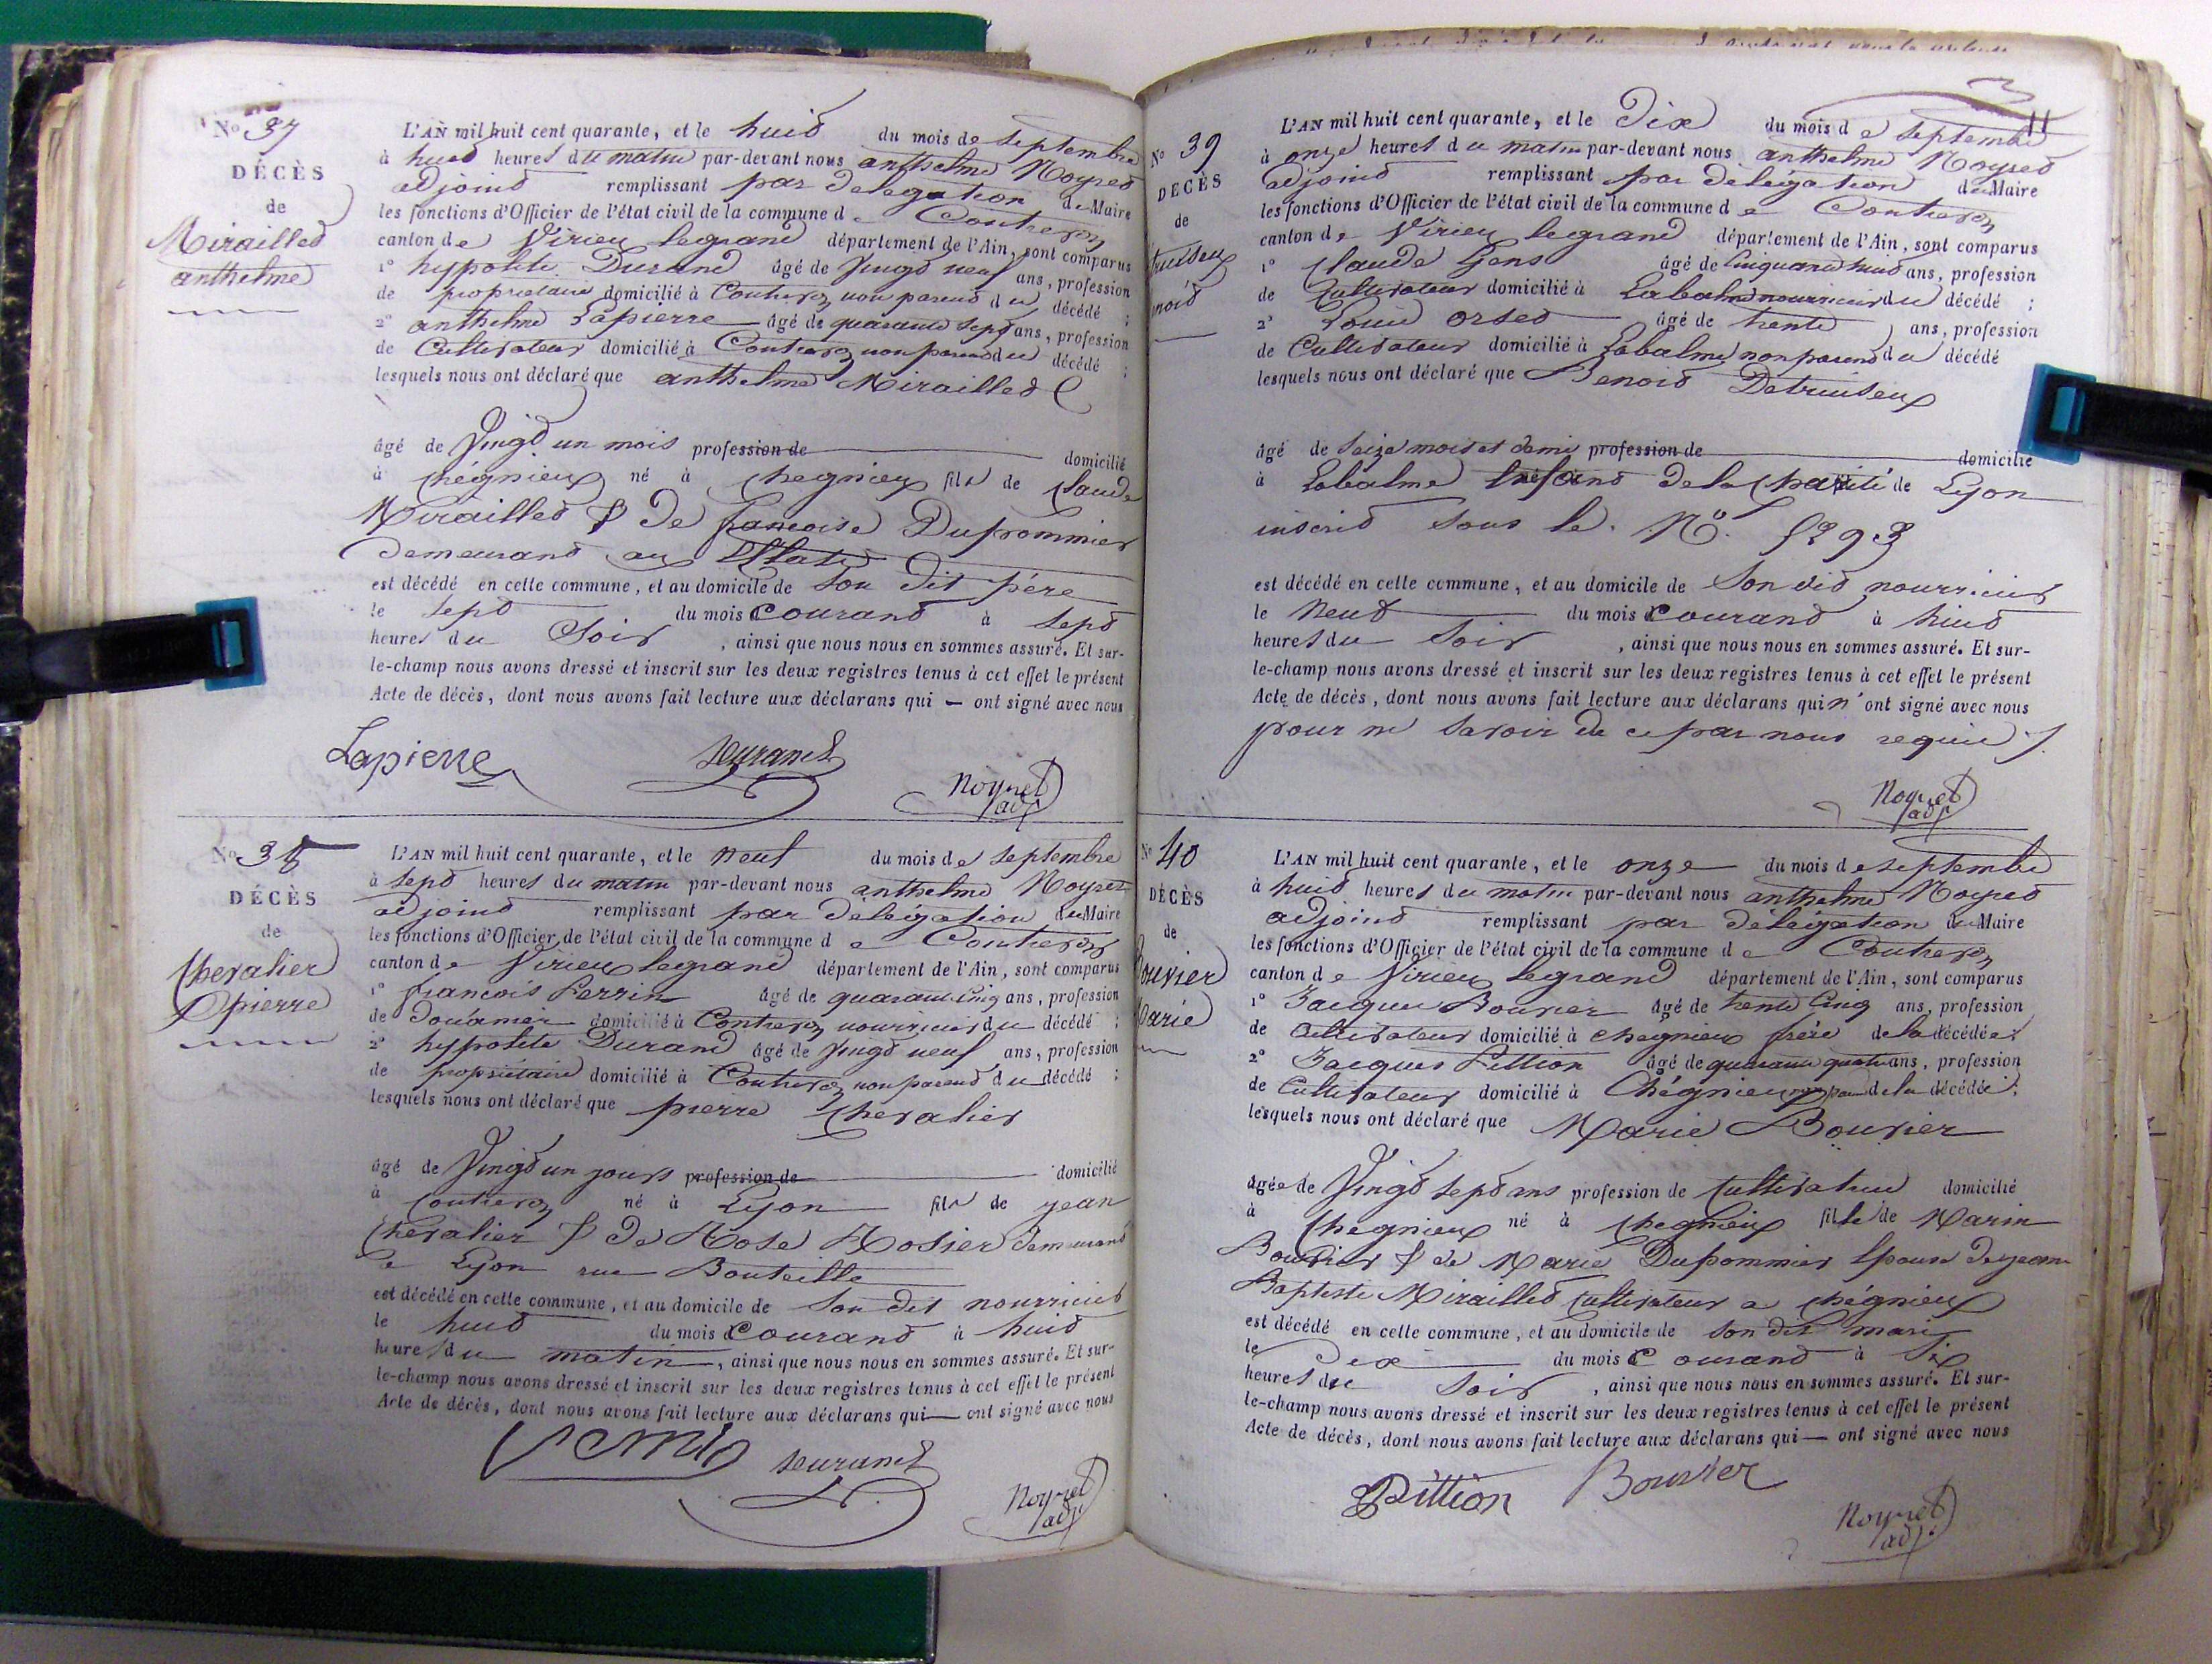 No 37
DÉCÈS
de
Mirailled
anthelme
L'AN mil huit cent quarante, et le huid du mois de septembre
à huid heures du matin par-devant nous anthelme Noyred
adjoind remplissant par delegation du Maire
les fonctions d'Officier de l'état civil de la commune de Contrevoz
canton de Virieu legrand département de l'Ain, sont comparus
1° hypolite Durand âgé de Vingd neuf ans, profession
de propriétaire domicilié à Contrevoz non parend du décédé ;
2° anthelme Lapierre âgé de quarante sepd ans, profession
de Cultivateur domicilié à Contrevoz non parend du décédé ;
lesquels nous ont déclaré que anthelme Mirailled
âgé de Vingd un mois profession de domicilié
à Chégnieux né à Chegnieux fils de Claude
Mirailled & de francoise Dupommier
demeurand au
est décédé en cette commune, et au domicile de son dit père
le sepd du mois Courand à sepd
heures du Soir, ainsi que nous nous en sommes assuré. Et sur-
le-champ nous avons dressé et inscrit sur les deux registres tenus à cet effet le présent
Acte de décès, dont nous avons fait lecture aux déclarans qui — ont signé avec nous
Lapierre Durand Noyret adj
No 38
DÉCÈS
de
Chevalier
pierre
L'AN mil huit cent quarante, et le neuf du mois de septembre
à sepd heures du matin par-devant nous anthelme Noyret
adjoind remplissant par délégation du Maire
les fonctions d'Officier de l'état civil de la commune de Contrevoz
canton de Virieu legrand département de l'Ain, sont comparus
1° francois Perrin âgé de quarante Cinq ans, profession
de Douanier domicilié à Contrevoz nourricier du décédé ;
2° hypolite Durand âgé de Vingd neuf ans, profession
de propriétaire domicilié à Contrevoz non parend du décédé ;
lesquels nous ont déclaré que pierre Chevalier
âgé de Vingd un jours profession de domicilié
à Contrevoz né à Lyon fils de jean
Chevalier & de Rose Rosier demeurand
a Lyon rue Bouteille
est décédé en cette commune, et au domicile de son dit nourricier
le huid du mois Courand à huid
heures du matin, ainsi que nous nous en sommes assuré. Et sur-
le-champ nous avons dressé et inscrit sur les deux registres tenus à cet effet le présent
Acte de décès, dont nous avons fait lecture aux déclarans qui — ont signé avec nous
Durand Noyret adj
11
No 39
DÉCÈS
de
truiseux
enoid
L'AN mil huit cent quarante, et le Dix du mois de septembre
à onze heures du matin par-devant nous anthelme Noyred
adjoind remplissant par délégation du Maire
les fonctions d'Officier de l'état civil de la commune de Contrevoz
canton de Virieu legrand département de l'Ain, sont comparus
1° Claude Gens âgé de Cinquante huid ans, profession
de Cultivateur domicilié à Labalme nourricier du décédé ;
2° Louis orsed âgé de trente ans, profession
de Cultivateur domicilié à Labalme non parend du décédé
lesquels nous ont déclaré que Benoid Detruiseux
âgé de Seize mois et demi profession de domicilié
à Labalme Enfand de la Charité de Lyon
inscrid sous le N°. 5293
est décédé en cette commune, et au domicile de Son did nourricier
le Neuf du mois Courand à huid
heures du Soir, ainsi que nous nous en sommes assuré. Et sur-
le-champ nous avons dressé et inscrit sur les deux registres tenus à cet effet le présent
Acte de décès, dont nous avons fait lecture aux déclarans qui n'ont signé avec nous
pour ne savoir de ce par nous requis
Noyret adj
No 40
DÉCÈS
de
Bouvier
Marie
L'AN mil huit cent quarante, et le onze du mois de septembre
à huid heures du matin par-devant nous anthelme Noyred
adjoind remplissant par délégation du Maire
les fonctions d'Officier de l'état civil de la commune de Contrevoz
canton de Virieu legrand département de l'Ain, sont comparus
1° Jacques Bouvier âgé de trente Cinq ans, profession
de Cultivateur domicilié à Chegnieux frère de la décédée
2° Jacques Pittion âgé de quarante quatre ans, profession
de Cultivateur domicilié à Chégnieux non parend de la décédée ;
lesquels nous ont déclaré que Marie Bouvier
âgée de Vingd sepd ans profession de Cultivatrice domicilié
à Chegnieux né à Chegnieux fille de Marin
Bouvier & de Marie Dupommier Epouse de jean
Baptiste Mirailled Cultivateur a Chégnieux
est décédé en cette commune, et au domicile de son dit mari
le Dix du mois Courand à Six
heures du Soir, ainsi que nous nous en sommes assuré. Et sur-
le-champ nous avons dressé et inscrit sur les deux registres tenus à cet effet le présent
Acte de décès, dont nous avons fait lecture aux déclarans qui — ont signé avec nous
Pittion Bouvier Noyret adj